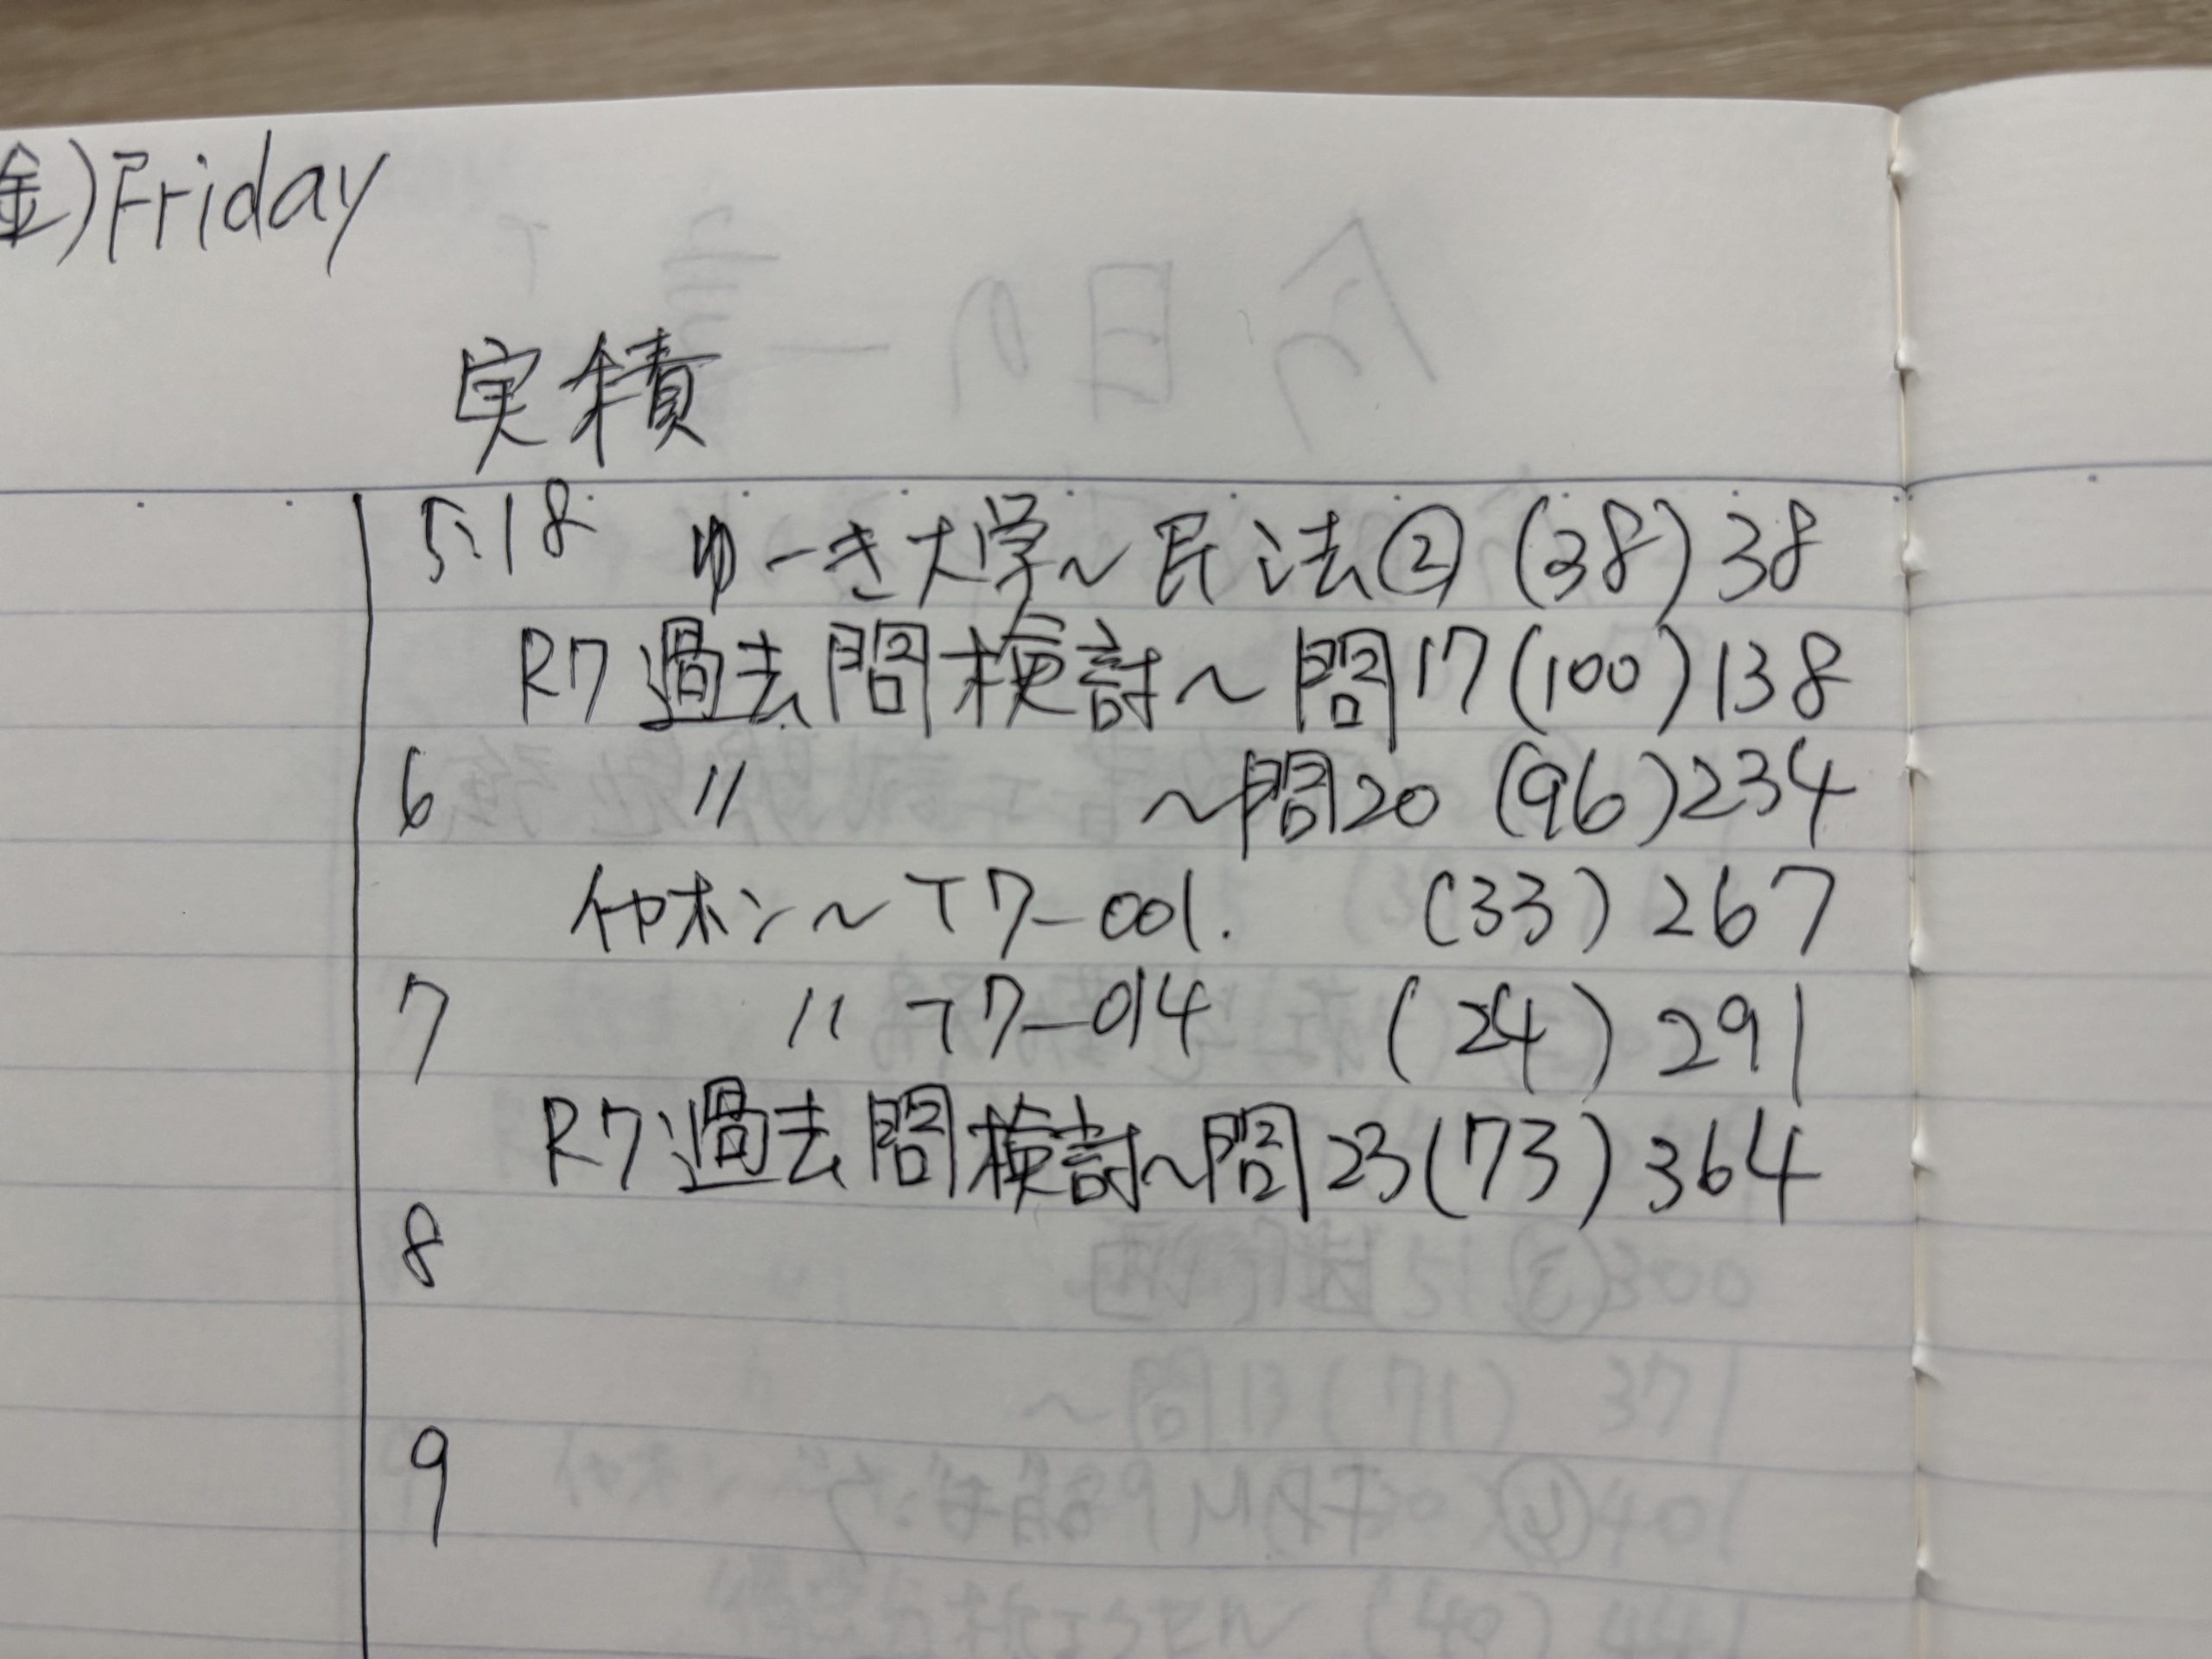 金)Friday
実績
5:18 ゆーき大学～民法② (38) 38
R7過去問検討～問17(100)138
6 〃 ～問20 (96)234
イヤホン～T7-001. (33) 267
7 〃 T7-014 (24) 291
R7過去問検討～問23(73)364
8
9